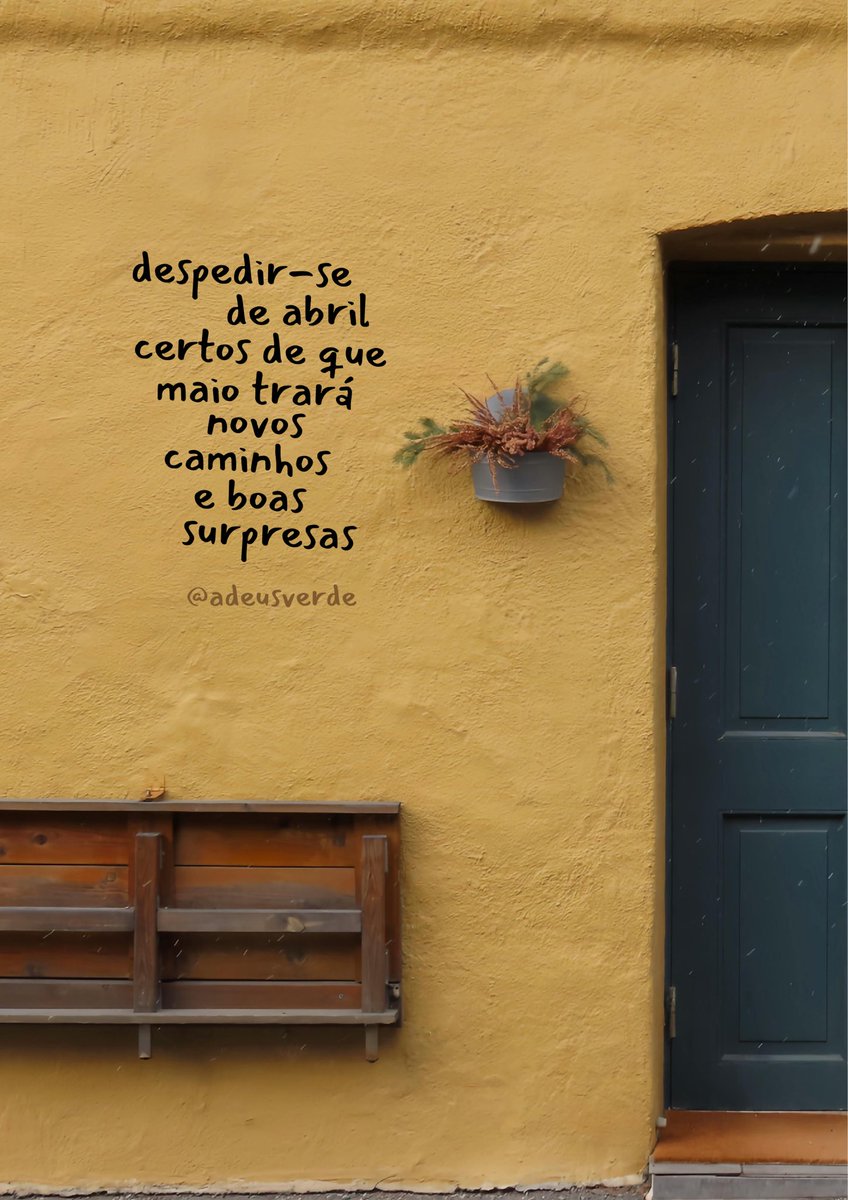 despedir-se
de abril
certos de que
maio trará
novos
caminhos
e boas
surpresas
@adeusverde